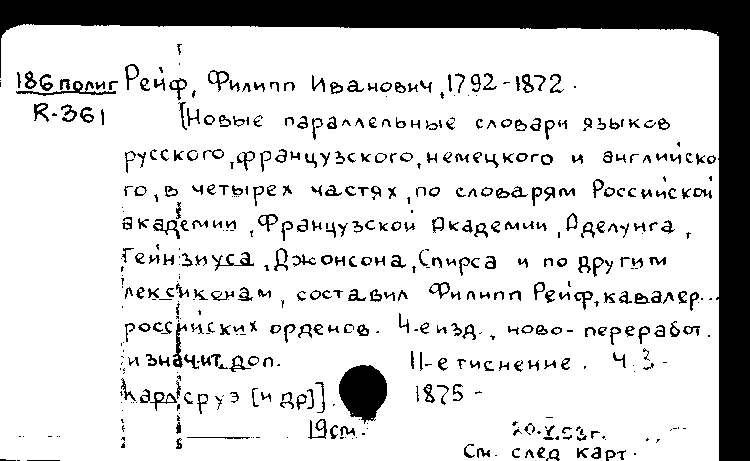 186 полиг Рейф, Филипп Иванович, 1792-1872.
R-361 [Новые параллельные словари языков
русского, французского, немецкого и английско
го, в четырех частях, по словарям Российской
академии, Французской Академии, Аделунга,
Гейнзиуса, Джонсона, Спирса и по другим
лексиконам, составил Филипп Рейф, кавалер...
российских орденов. 4-е изд., ново-переработ.
и значит. доп. 11-е тиснение. Ч. 3.-
Карлсруэ [и др]]. 1875 -
19см. 20.X.53г.
См. след карт.